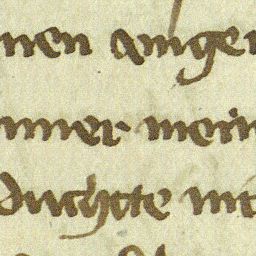 nen ainger
nmer mein
duchtte mi